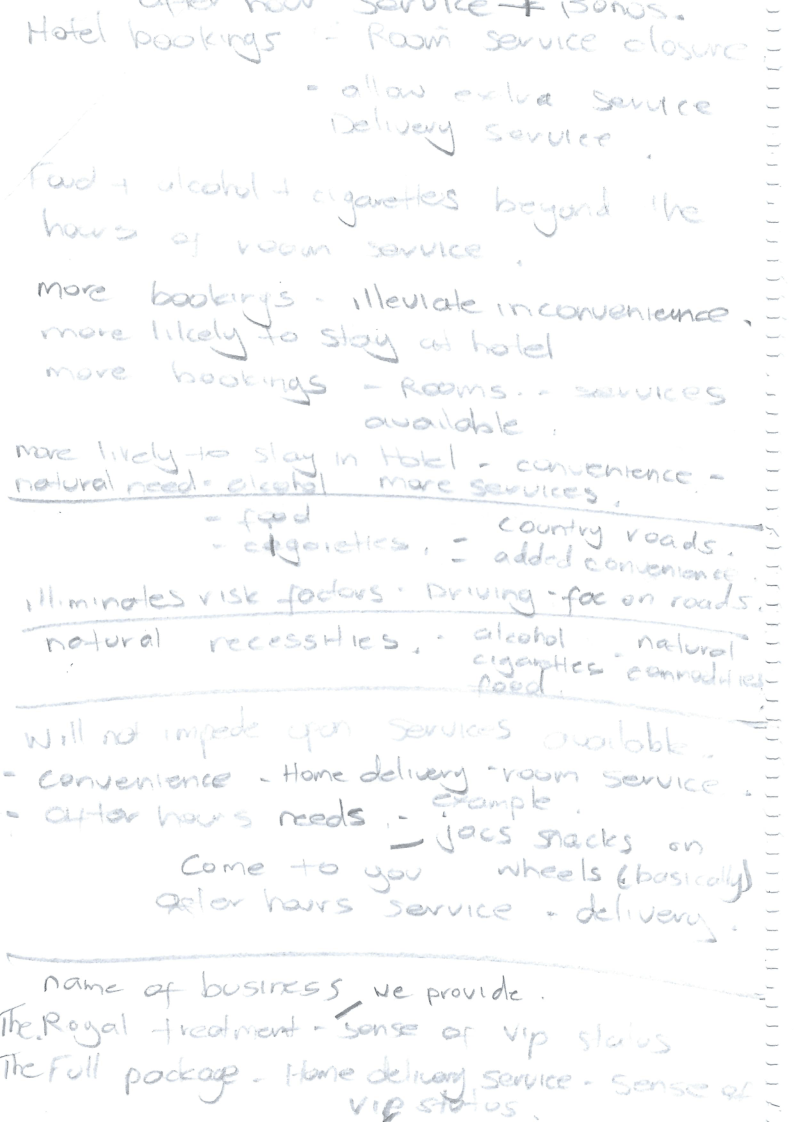 after hour service + Bonus.
Hotel bookings - Room service closure
- allow extra service
Delivery service
Food + alcohol + cigarettes beyond the
hours of room service.
more bookings - illeviate inconvenience.
more likely to stay at hotel
more bookings - Rooms. - services
available.
more likely to stay in Hotel - convenience -
natural need - alcohol more services.
- food country roads.
- cigarettes. = added convenience.
illiminates risk factors. Driving - on roads.
natural necessities. - alcohol natural
cigarettes - commodities
food.
Will not impede upon services available.
- convenience - Home delivery - room service.
- after hours needs. - example.
- jocs snacks on
Come to you wheels (basically)
after hours service - delivery.
name of business we provide.
The Royal treatment - sense of vip status
The Full package - Home delivery service - sense of
vip status.